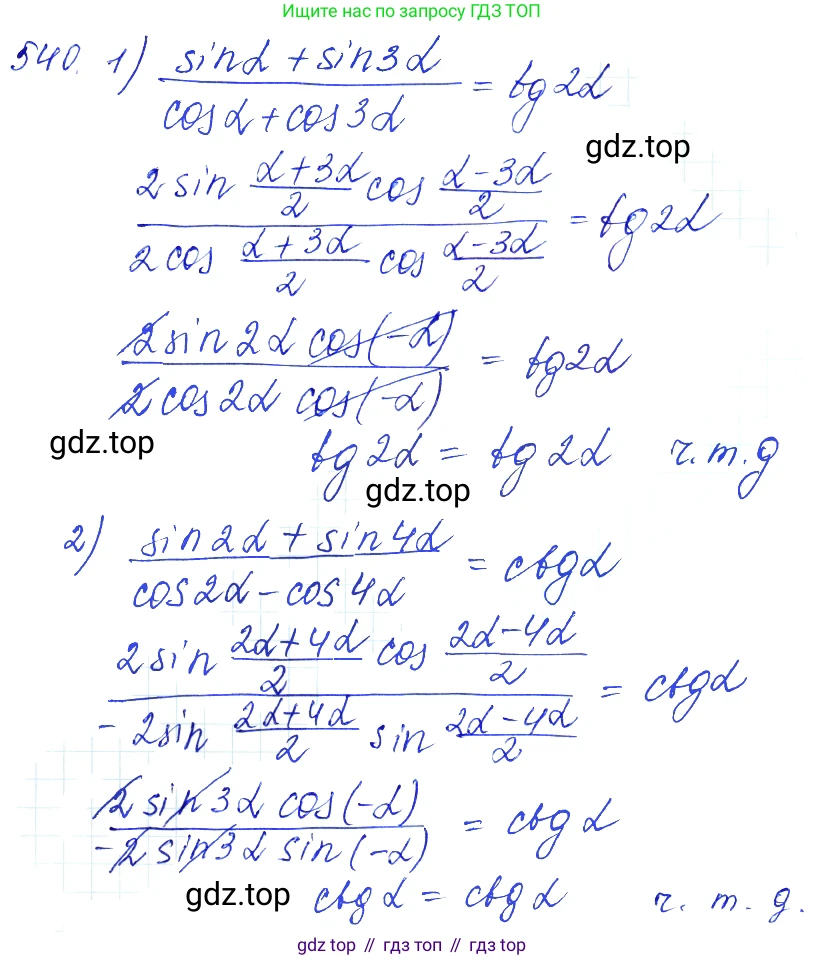 Ищите нас по запросу ГДЗ ТОП
540. 1) (sinα + sin3α)/(cosα + cos3α) = tg2α
gdz.top
(2 sin (α+3α)/2 cos (α-3α)/2)/(2 cos (α+3α)/2 cos (α-3α)/2) = tg2α
(2 sin 2α cos(-α))/(2 cos 2α cos(-α)) = tg2α
gdz.top
tg2α = tg2α ч.т.д
gdz.top
2) (sin2α + sin4α)/(cos2α - cos4α) = ctgα
(2 sin (2α+4α)/2 cos (2α-4α)/2)/(-2 sin (2α+4α)/2 sin (2α-4α)/2) = ctgα
(2 sin 3α cos(-α))/(-2 sin 3α sin(-α)) = ctgα
gdz.top
ctgα = ctgα ч.т.д.
gdz top // гдз топ // гдз.топ